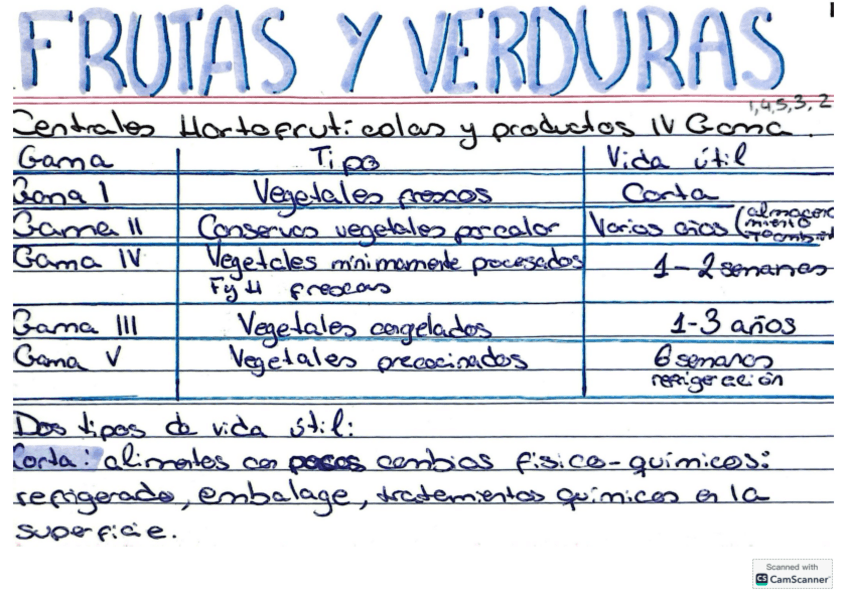 FRUTAS Y VERDURAS
1,4,5,3,2
Centrales Hortofrutícolas y productos IV Gama.
Gama Tipo Vida útil
Gama I Vegetales frescos Corta
Gama II Conservas vegetales por calor Varios años (almacena
miento
Tª ambient
Gama IV Vegetales mínimamente procesados 1-2 semanas
F y H frescas
Gama III Vegetales congelados 1-3 años
Gama V Vegetales precocinados 6 semanas
refrigeración
Dos tipos de vida útil:
Corta: alimentos con pocos cambios físico-químicos:
refrigerado, embalage, tratamientos químicos en la
superficie.
Scanned with
CS CamScanner